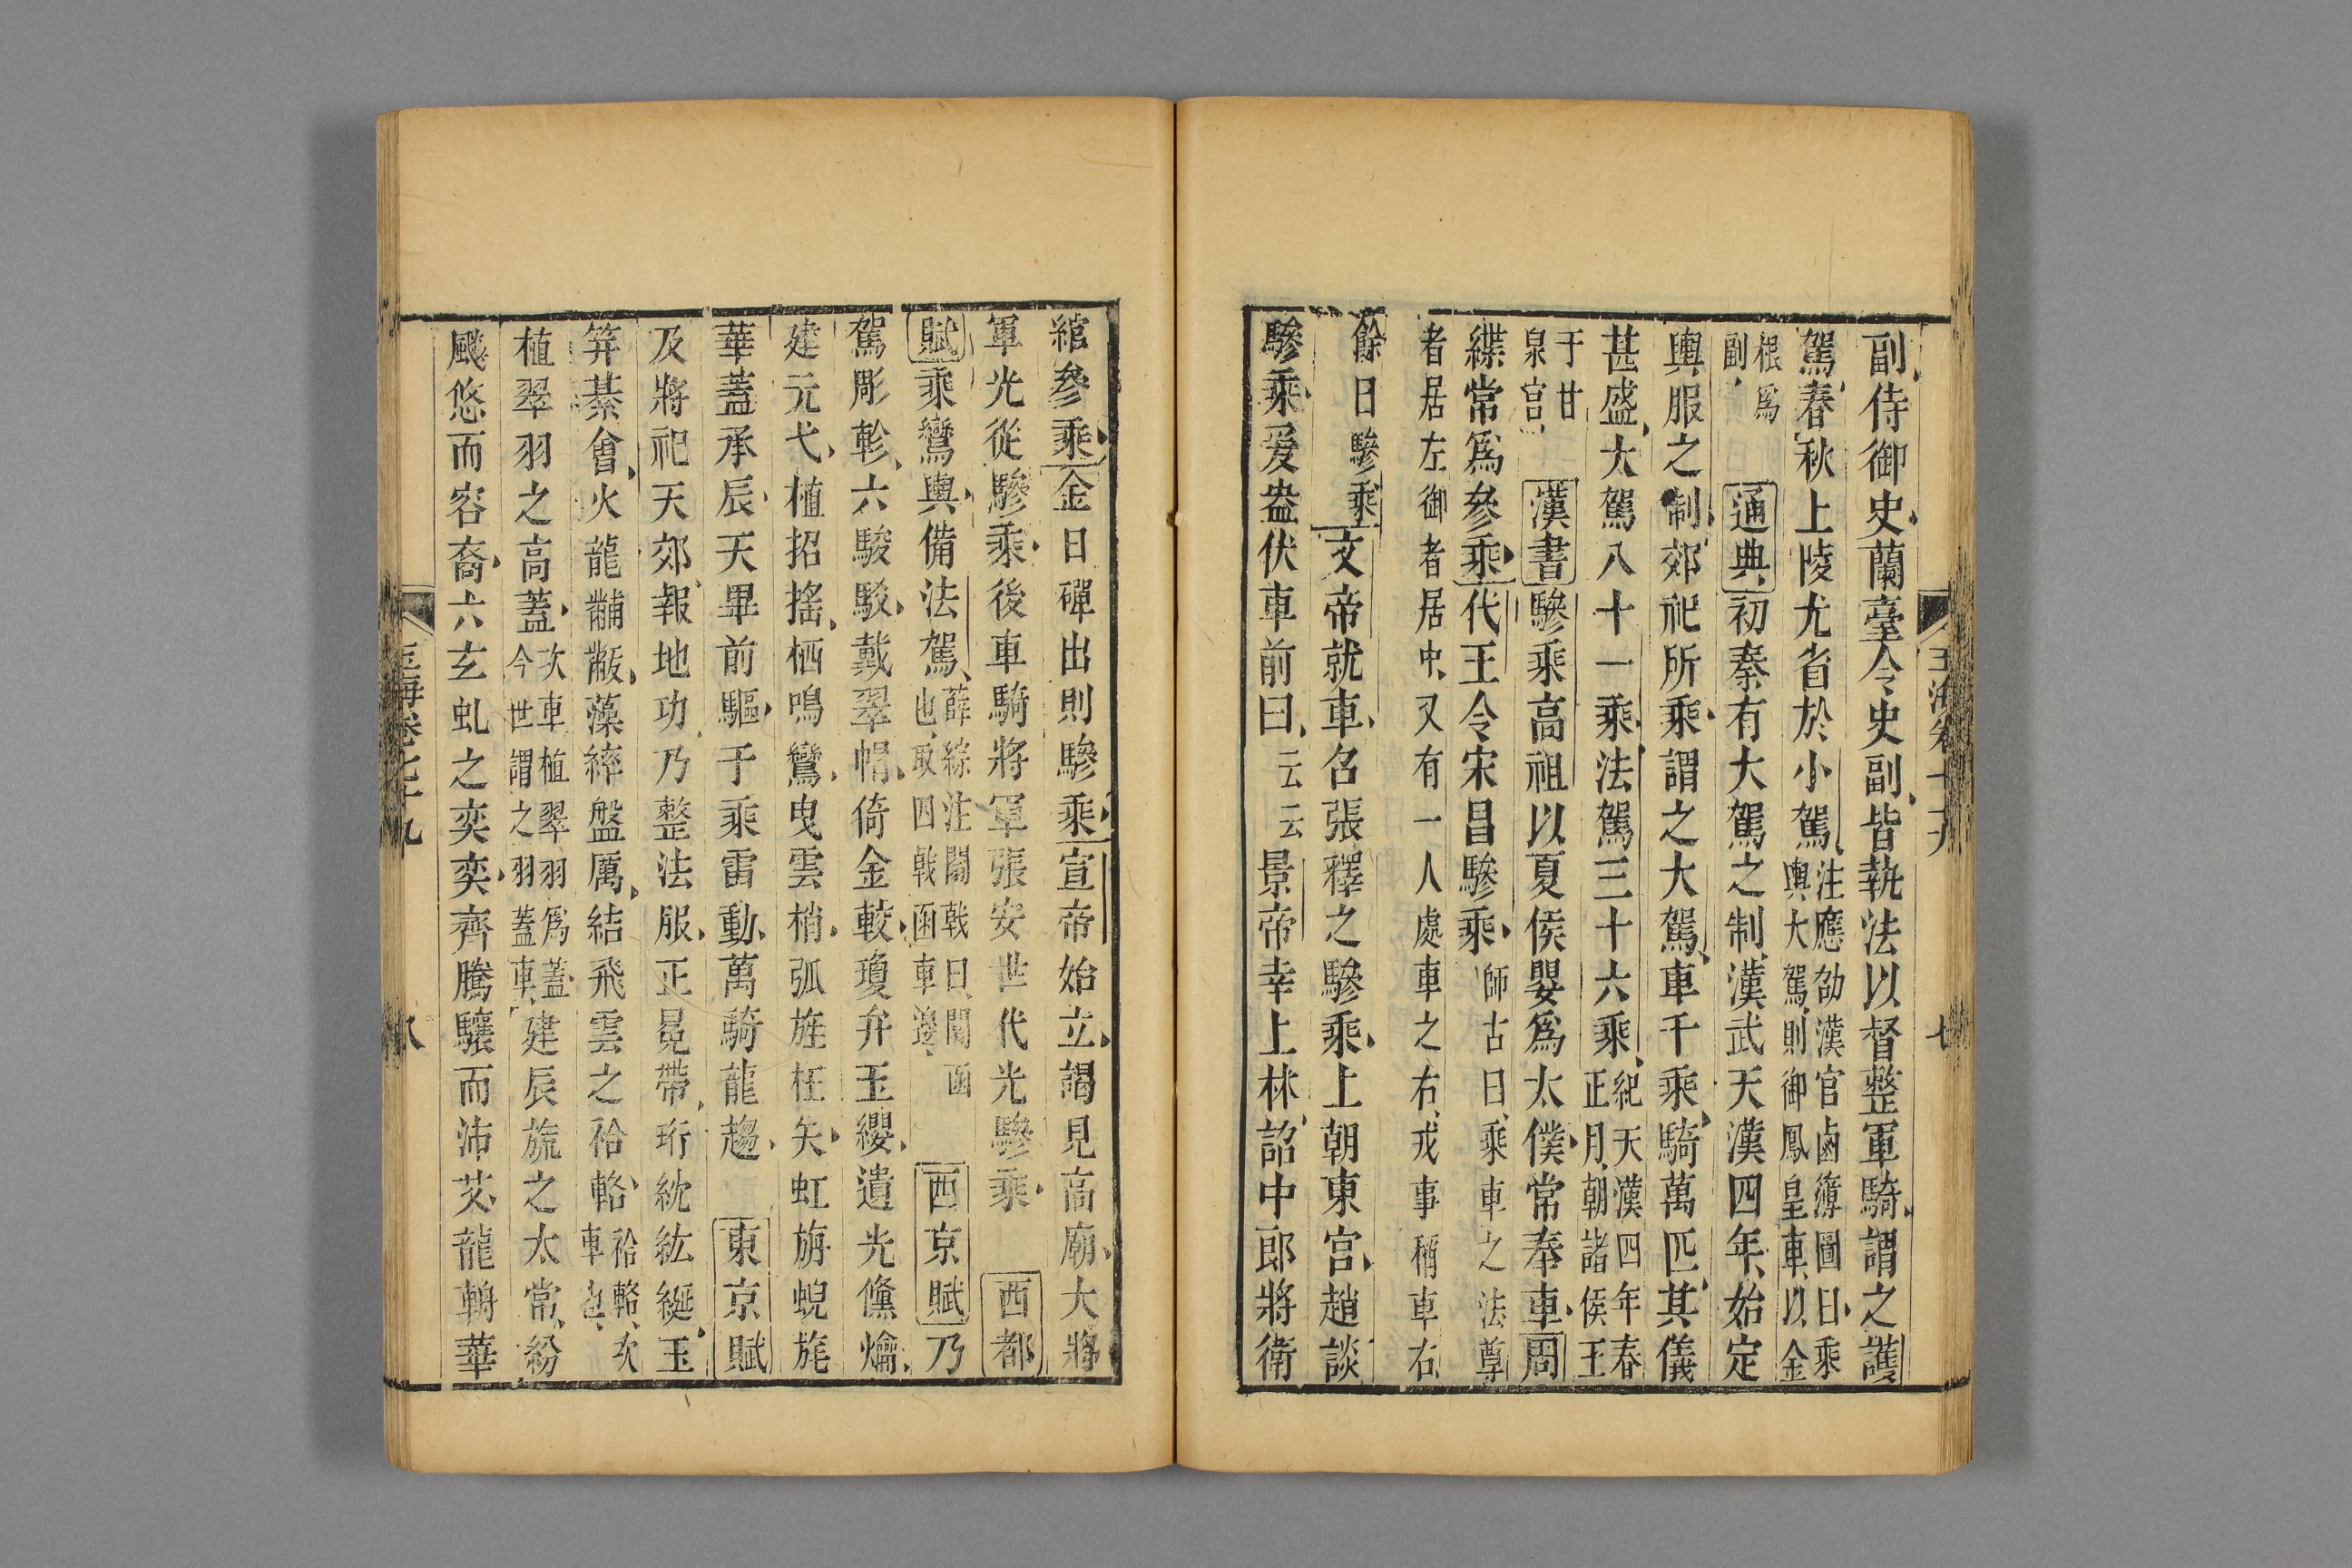 副侍御史蘭臺令史副皆執法以督整軍騎謂之護
駕春秋上陵尤省於小駕注應劭漢官鹵簿圖曰乘輿大駕則御鳳皇車以金
根爲副通典初秦有大駕之制漢武天漢四年始定
輿服之制郊祀所乘謂之大駕車千乘騎萬匹其儀
甚盛大駕八十一乘法駕三十六乘紀天漢四年春正月朝諸侯王
于甘泉宮漢書驂乘高祖以夏侯嬰爲太僕常奉車周
緤常爲參乘代王令宋昌驂乘師古曰乘車之法尊
者居左御者居中又有一人處車之右戎事稱車右
餘曰驂乘文帝就車名張釋之驂乘上朝東宮趙談
驂乘爰盎伏車前曰云云景帝幸上林詔中郎將衛
綰參乘金日磾出則驂乘宣帝始立謁見高廟大將
軍光從驂乘後車騎將軍張安世代光驂乘西都
賦乘鸞輿備法駕薛綜注闟戟曰闟函也取四戟函車邊西京賦乃
駕彫軫六駿駮戴翠帽倚金較璿弁玉纓遺光儵爚
建元弋植招搖栖鳴鸞曳雲梢弧旌枉矢虹旃蜺旄
華蓋承辰天畢前驅千乘雷動萬騎龍趨東京賦
及將祀天郊報地功乃整法服正冕帶珩紞紘綖玉
笄綦會火龍黼黻藻繂鞶厲結飛雲之袷輅袷輅次車也
植翠羽之高蓋次車植翠羽爲蓋今世謂之羽蓋車建辰旒之太常紛
飈悠而容裔六玄虬之奕奕齊騰驤而沛艾龍輈華
玉海卷七十九
七
八